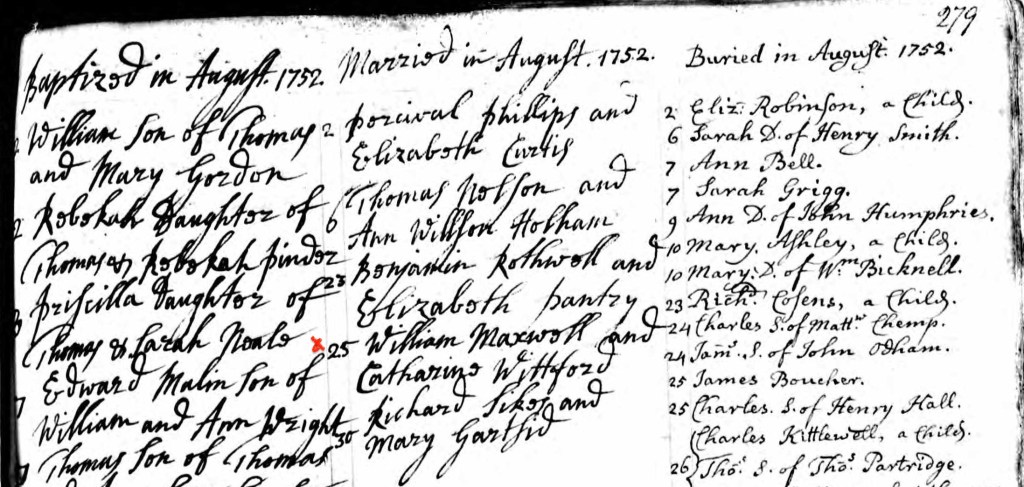 279
Baptized in August. 1752.
2 William Son of Thomas
and Mary Gordon
2 Rebekah Daughter of
Thomas & Rebekah Pinder
Priscilla Daughter of
Thomas & Sarah Neale
Edward Malin Son of
William and Ann Wright
Thomas Son of Thomas
Married in August. 1752.
2 Percival Phillips and
Elizabeth Curtis
6 Thomas Nelson and
Ann Willson Holham
23 Benjamin Rothwell and
Elizabeth Pantry
x 25 William Maxwell and
Catharine Wittford
30 Richard Sikes and
Mary Garthid
Buried in August. 1752.
2 Eliz: Robinson, a Child.
6 Sarah D. of Henry Smith.
7 Ann Bell.
7 Sarah Grigg.
9 Ann D. of John Humphries.
10 Mary Ashley, a Child.
10 Mary: D. of Wm Bicknell.
23 Richd. Cosens, a Child.
24 Charles S. of Mattw Chemp.
24 Jams. S. of John Odham.
25 James Boucher.
25 Charles. S. of Henry Hall.
Charles Kittlewell, a Child.
26 Thos. S. of Thos. Partridge.